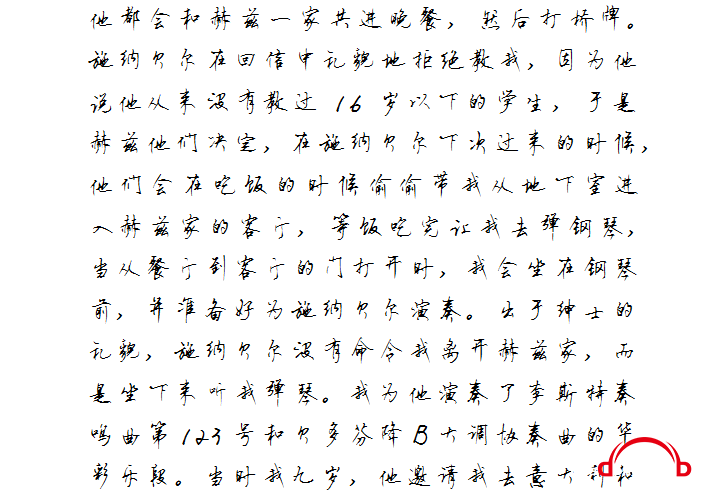 他都会和赫兹一家共进晚餐，然后打桥牌。
施纳贝尔在回信中礼貌地拒绝教我，因为他
说他从来没有教过16岁以下的学生，于是
赫兹他们决定，在施纳贝尔下次过来的时候，
他们会在吃饭的时候偷偷带我从地下室进
入赫兹家的客厅，等饭吃完让我去弹钢琴，
当从餐厅到客厅的门打开时，我会坐在钢琴
前，并准备好为施纳贝尔演奏。出于绅士的
礼貌，施纳贝尔没有命令我离开赫兹家，而
是坐下来听我弹琴。我为他演奏了李斯特奏
鸣曲第123号和贝多芬降B大调协奏曲的华
彩乐段。当时我九岁，他邀请我去意大利和